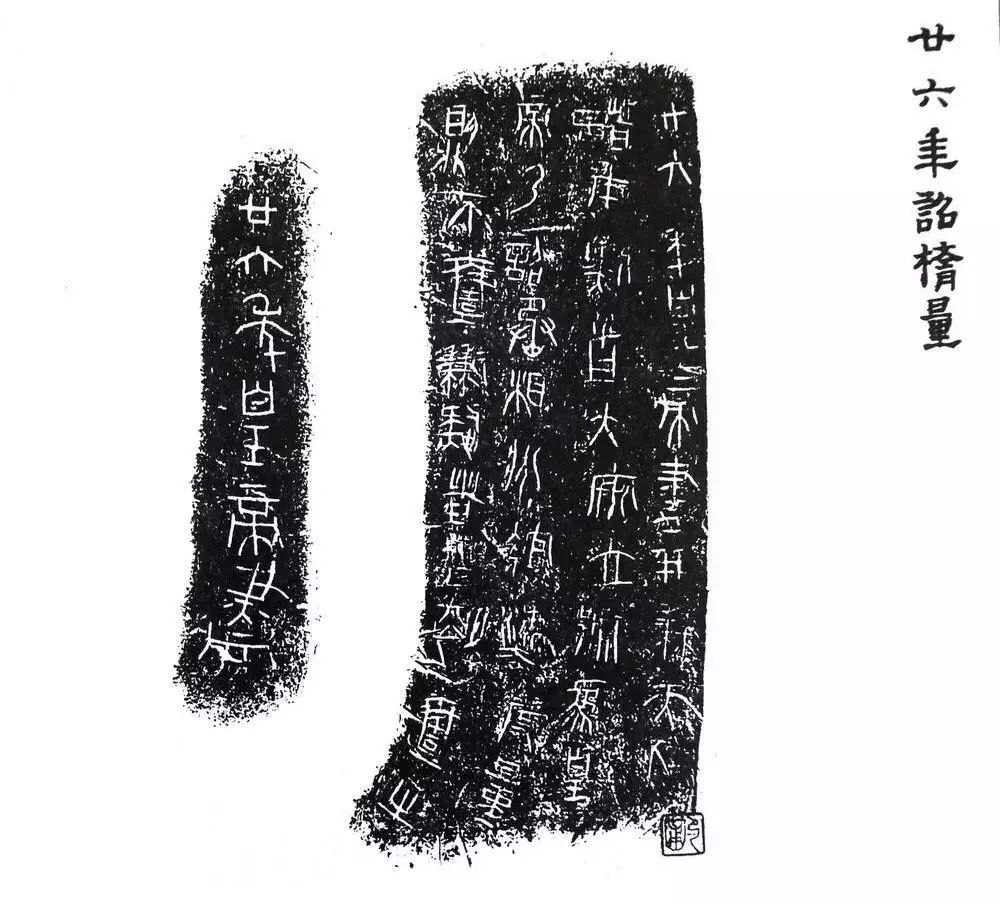 廿六年詔橢量
廿六年皇帝盡并兼天下
諸侯黔首大安立號為皇
帝乃詔丞相狀綰法度量
則不壹歉疑者皆明壹之
廿六年皇帝